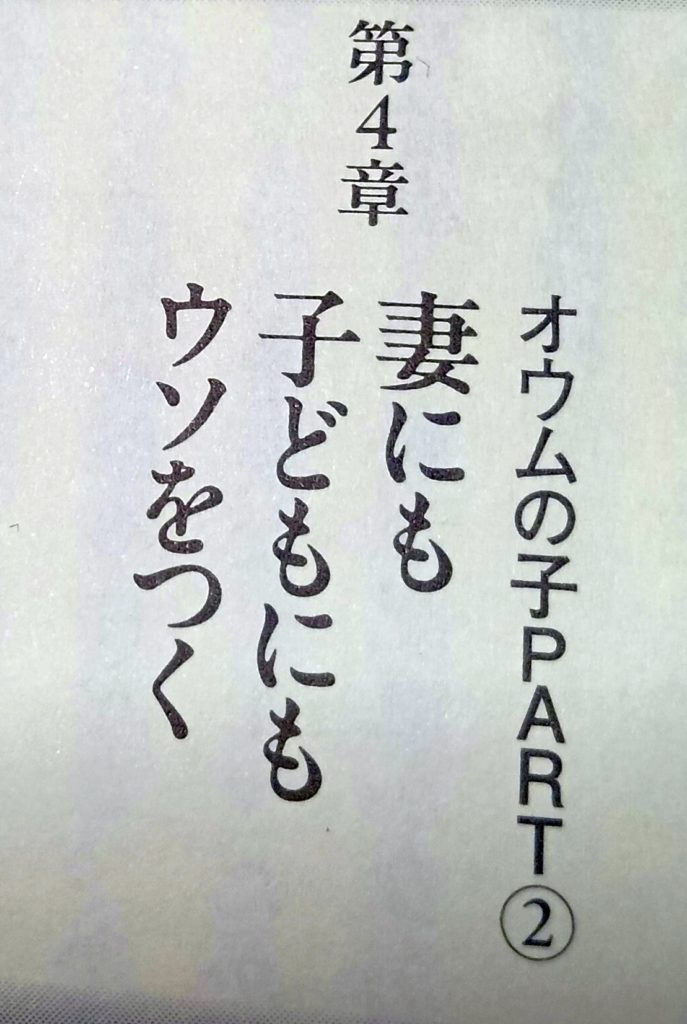 第4章
オウムの子PART②
妻にも
子どもにも
ウソをつく